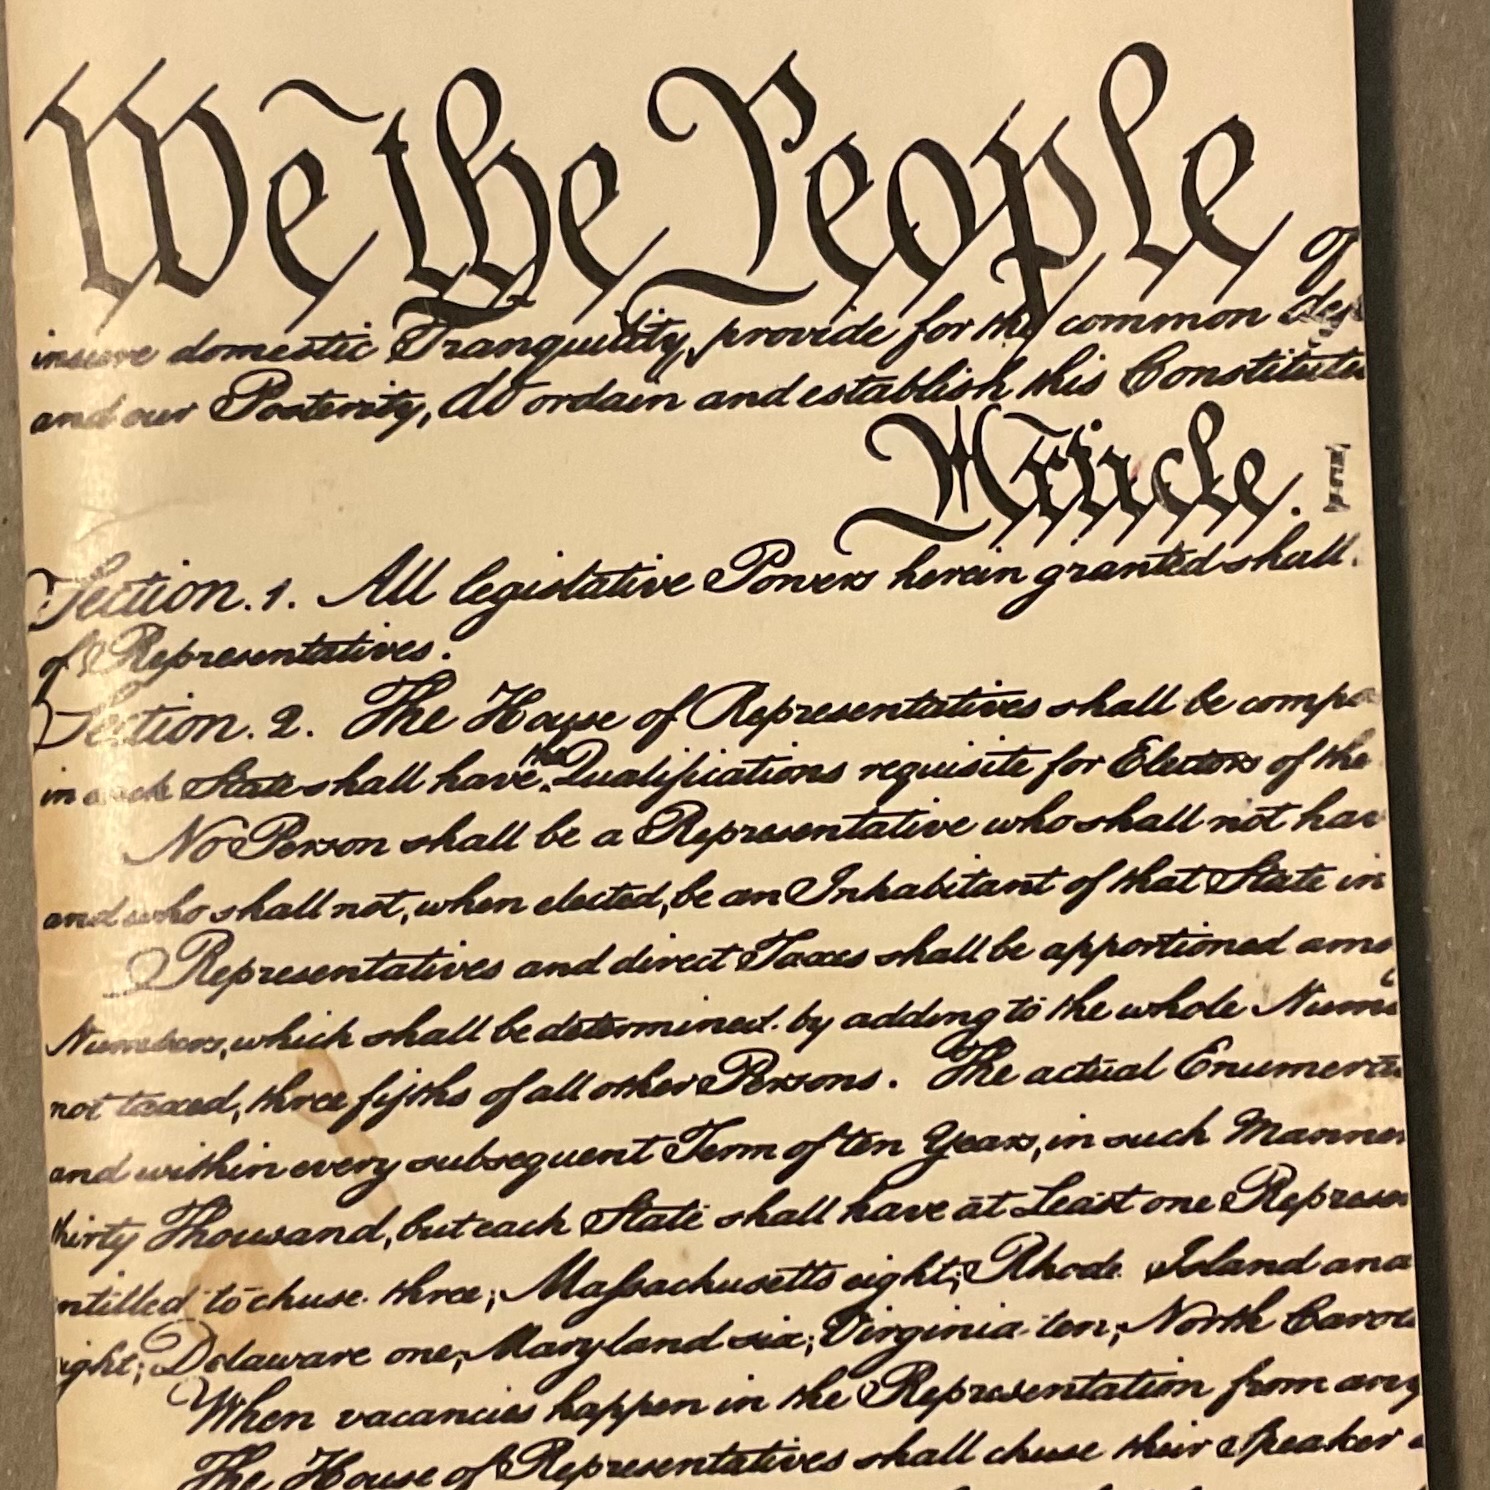 We the People of
insure domestic Tranquility, provide for the common def
and our Posterity, do ordain and establish this Constitutio
Article. I
Section. 1. All legislative Powers herein granted shall
of Representatives.
Section. 2. The House of Representatives shall be compo
in each State shall have the Qualifications requisite for Electors of the
No Person shall be a Representative who shall not hav
and who shall not, when elected, be an Inhabitant of that State in
Representatives and direct Taxes shall be apportioned amo
Numbers, which shall be determined by adding to the whole Numb
not taxed, three fifths of all other Persons. The actual Enumerati
and within every subsequent Term of ten Years, in such Manner
thirty Thousand, but each State shall have at Least one Represen
ntitled to chuse three, Massachusetts eight, Rhode Island and
ight, Delaware one, Maryland six, Virginia ten, North Caroli
When vacancies happen in the Representation from any
The House of Representatives shall chuse their Speaker